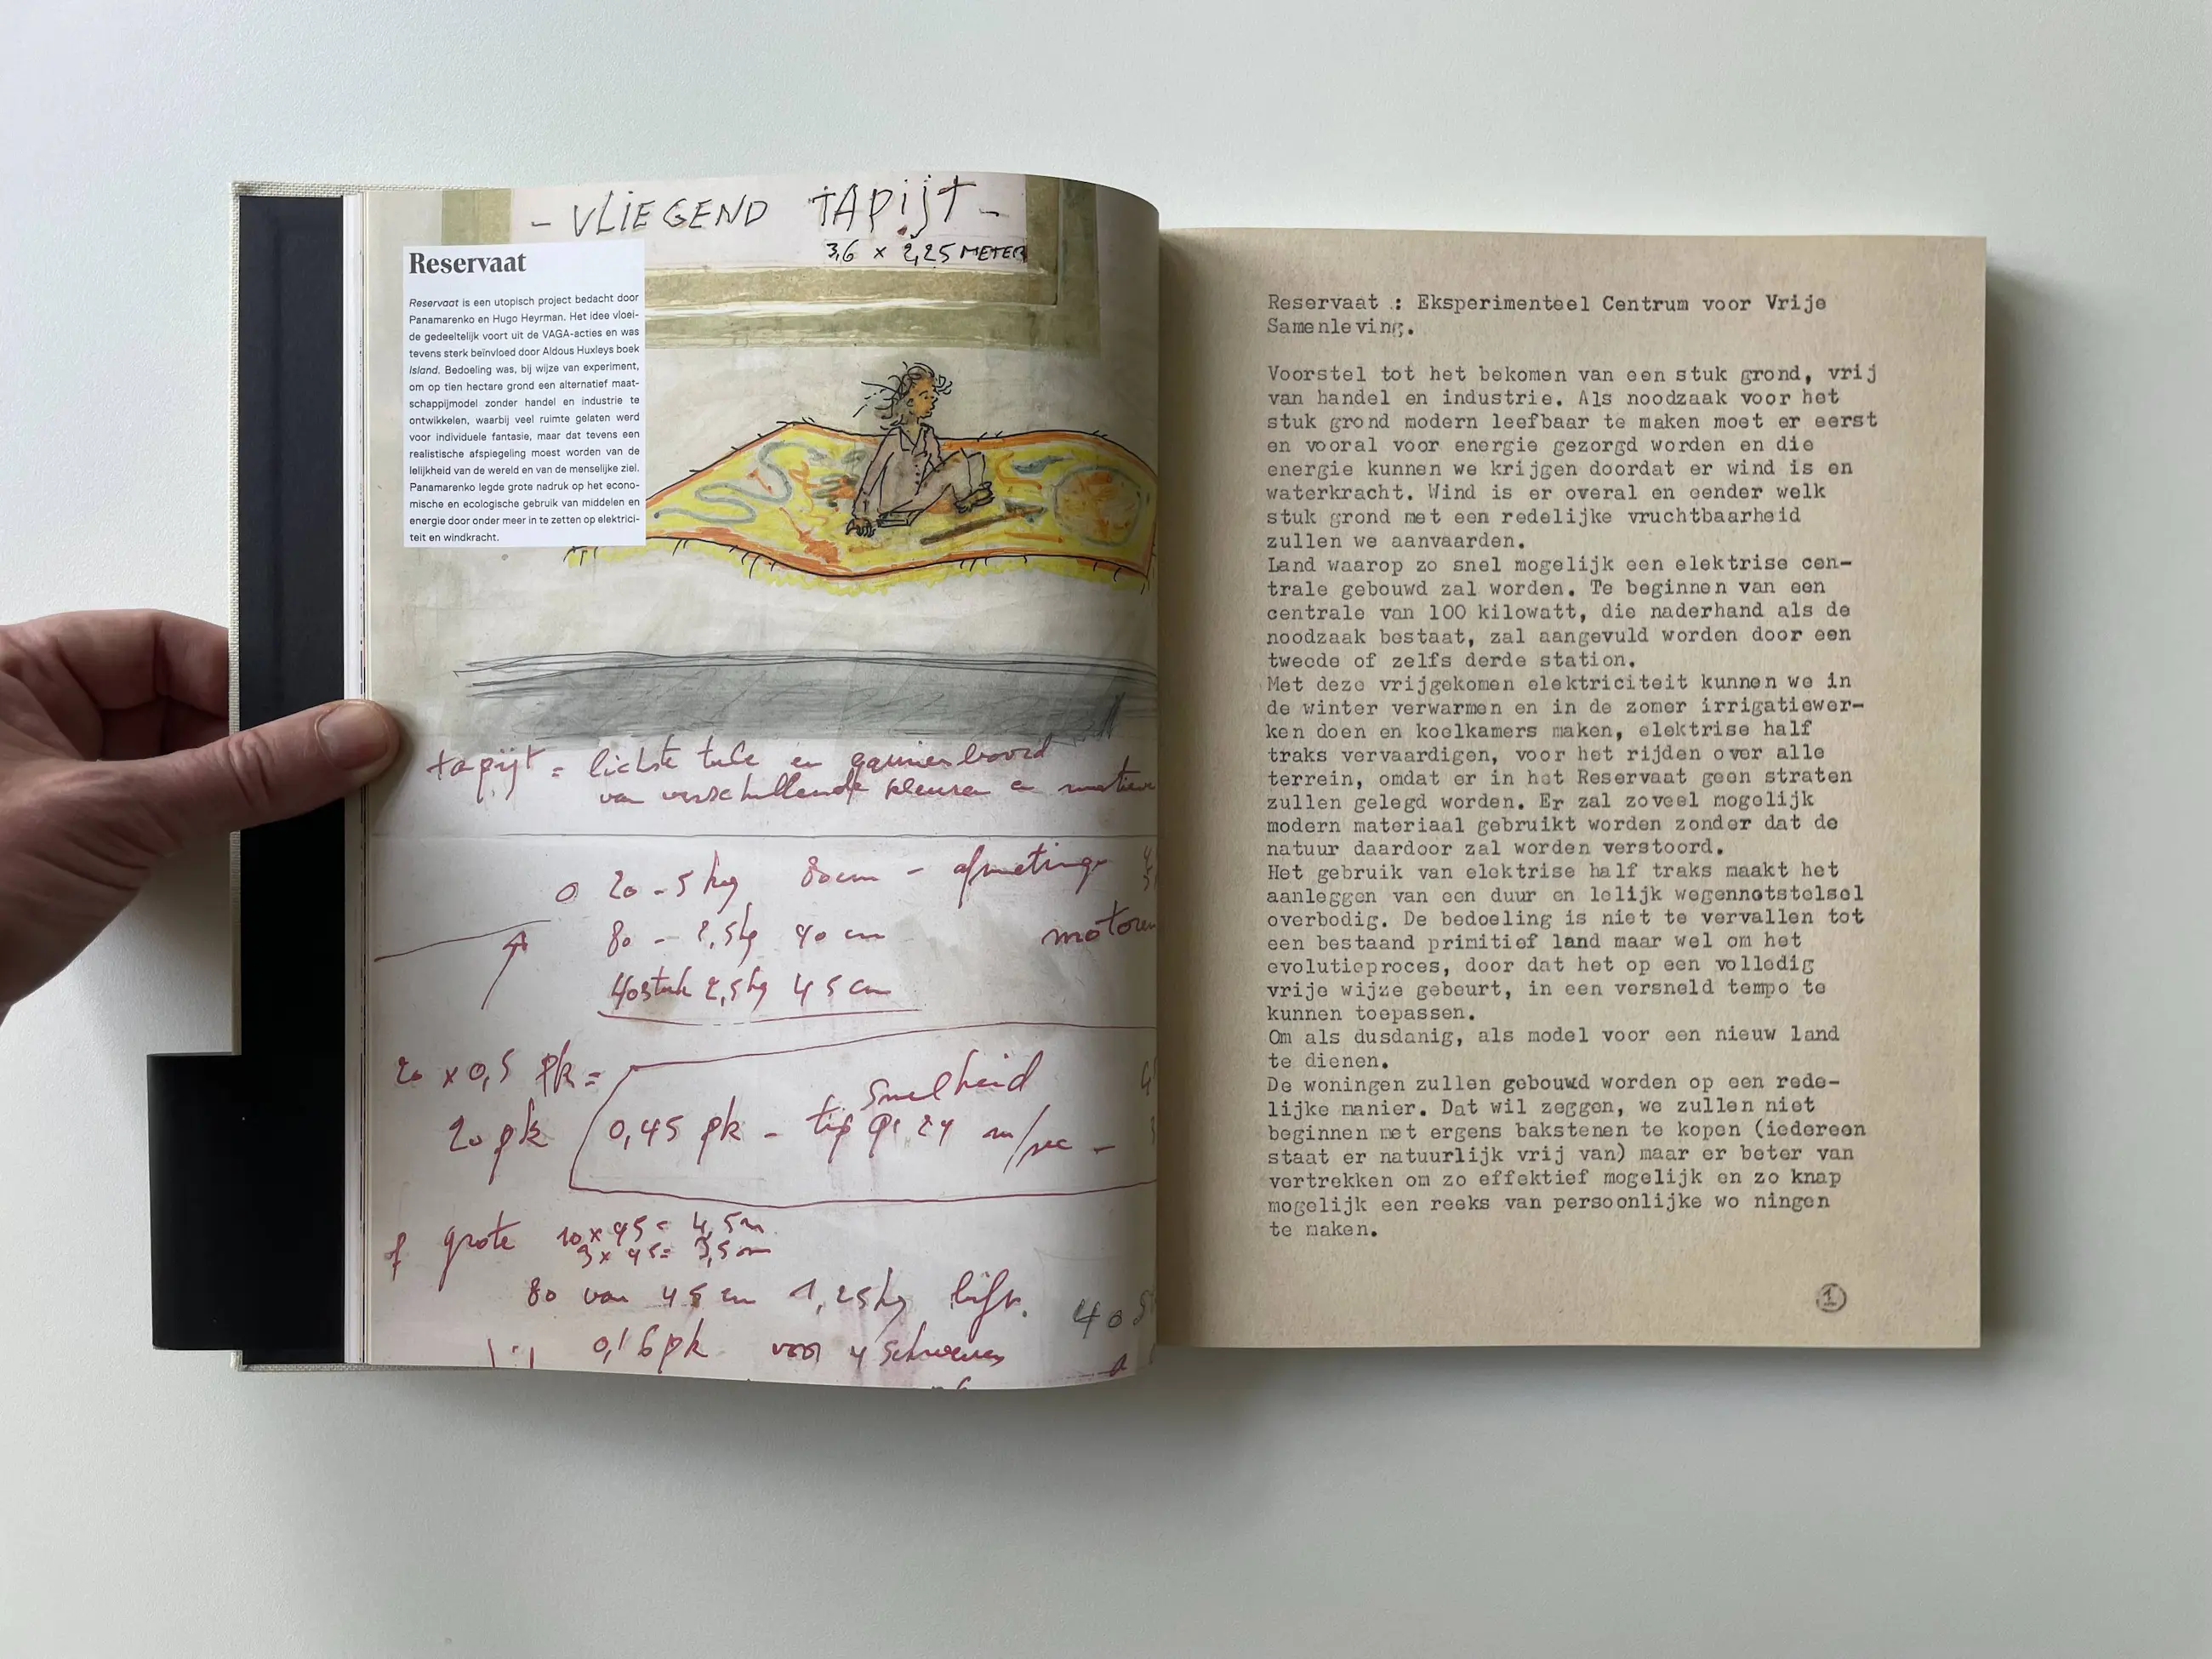 - VLIEGEND TAPIJT -
3,6 x 2,25 METER
Reservaat
Reservaat is een utopisch project bedacht door
Panamarenko en Hugo Heyrman. Het idee vloei-
de gedeeltelijk voort uit de VAGA-acties en was
tevens sterk beïnvloed door Aldous Huxleys boek
Island. Bedoeling was, bij wijze van experiment,
om op tien hectare grond een alternatief maat-
schappijmodel zonder handel en industrie te
ontwikkelen, waarbij veel ruimte gelaten werd
voor individuele fantasie, maar dat tevens een
realistische afspiegeling moest worden van de
lelijkheid van de wereld en van de menselijke ziel.
Panamarenko legde grote nadruk op het econo-
mische en ecologische gebruik van middelen en
energie door onder meer in te zetten op elektrici-
teit en windkracht.
tapijt = lichste tule en
van verschillende kleuren en
0 20 - 5 kg 80 cm - afmeting
80 - 2,5 kg 40 cm motoren
40 stuk 2,5 kg 45 cm
20 x 0,5 pk =
snelheid
20 pk 0,45 pk - tip 24 m/sec -
of grote 10 x 45 = 4,5 m
3 x 45 = 3,5 m
80 van 45 cm 1,25 kg
0,16 pk voor 4
Reservaat : Eksperimenteel Centrum voor Vrije
Samenleving.
Voorstel tot het bekomen van een stuk grond, vrij
van handel en industrie. Als noodzaak voor het
stuk grond modern leefbaar te maken moet er eerst
en vooral voor energie gezorgd worden en die
energie kunnen we krijgen doordat er wind is en
waterkracht. Wind is er overal en eender welk
stuk grond met een redelijke vruchtbaarheid
zullen we aanvaarden.
Land waarop zo snel mogelijk een elektrise cen-
trale gebouwd zal worden. Te beginnen van een
centrale van 100 kilowatt, die naderhand als de
noodzaak bestaat, zal aangevuld worden door een
tweede of zelfs derde station.
Met deze vrijgekomen elektriciteit kunnen we in
de winter verwarmen en in de zomer irrigatiewer-
ken doen en koelkamers maken, elektrise half
traks vervaardigen, voor het rijden over alle
terrein, omdat er in het Reservaat geen straten
zullen gelegd worden. Er zal zoveel mogelijk
modern materiaal gebruikt worden zonder dat de
natuur daardoor zal worden verstoord.
Het gebruik van elektrise half traks maakt het
aanleggen van een duur en lelijk wegennetstelsel
overbodig. De bedoeling is niet te vervallen tot
een bestaand primitief land maar wel om het
evolutieproces, door dat het op een volledig
vrije wijze gebeurt, in een versneld tempo te
kunnen toepassen.
Om als dusdanig, als model voor een nieuw land
te dienen.
De woningen zullen gebouwd worden op een rede-
lijke manier. Dat wil zeggen, we zullen niet
beginnen met ergens bakstenen te kopen (iedereen
staat er natuurlijk vrij van) maar er beter van
vertrekken om zo effektief mogelijk en zo knap
mogelijk een reeks van persoonlijke wo ningen
te maken.
1